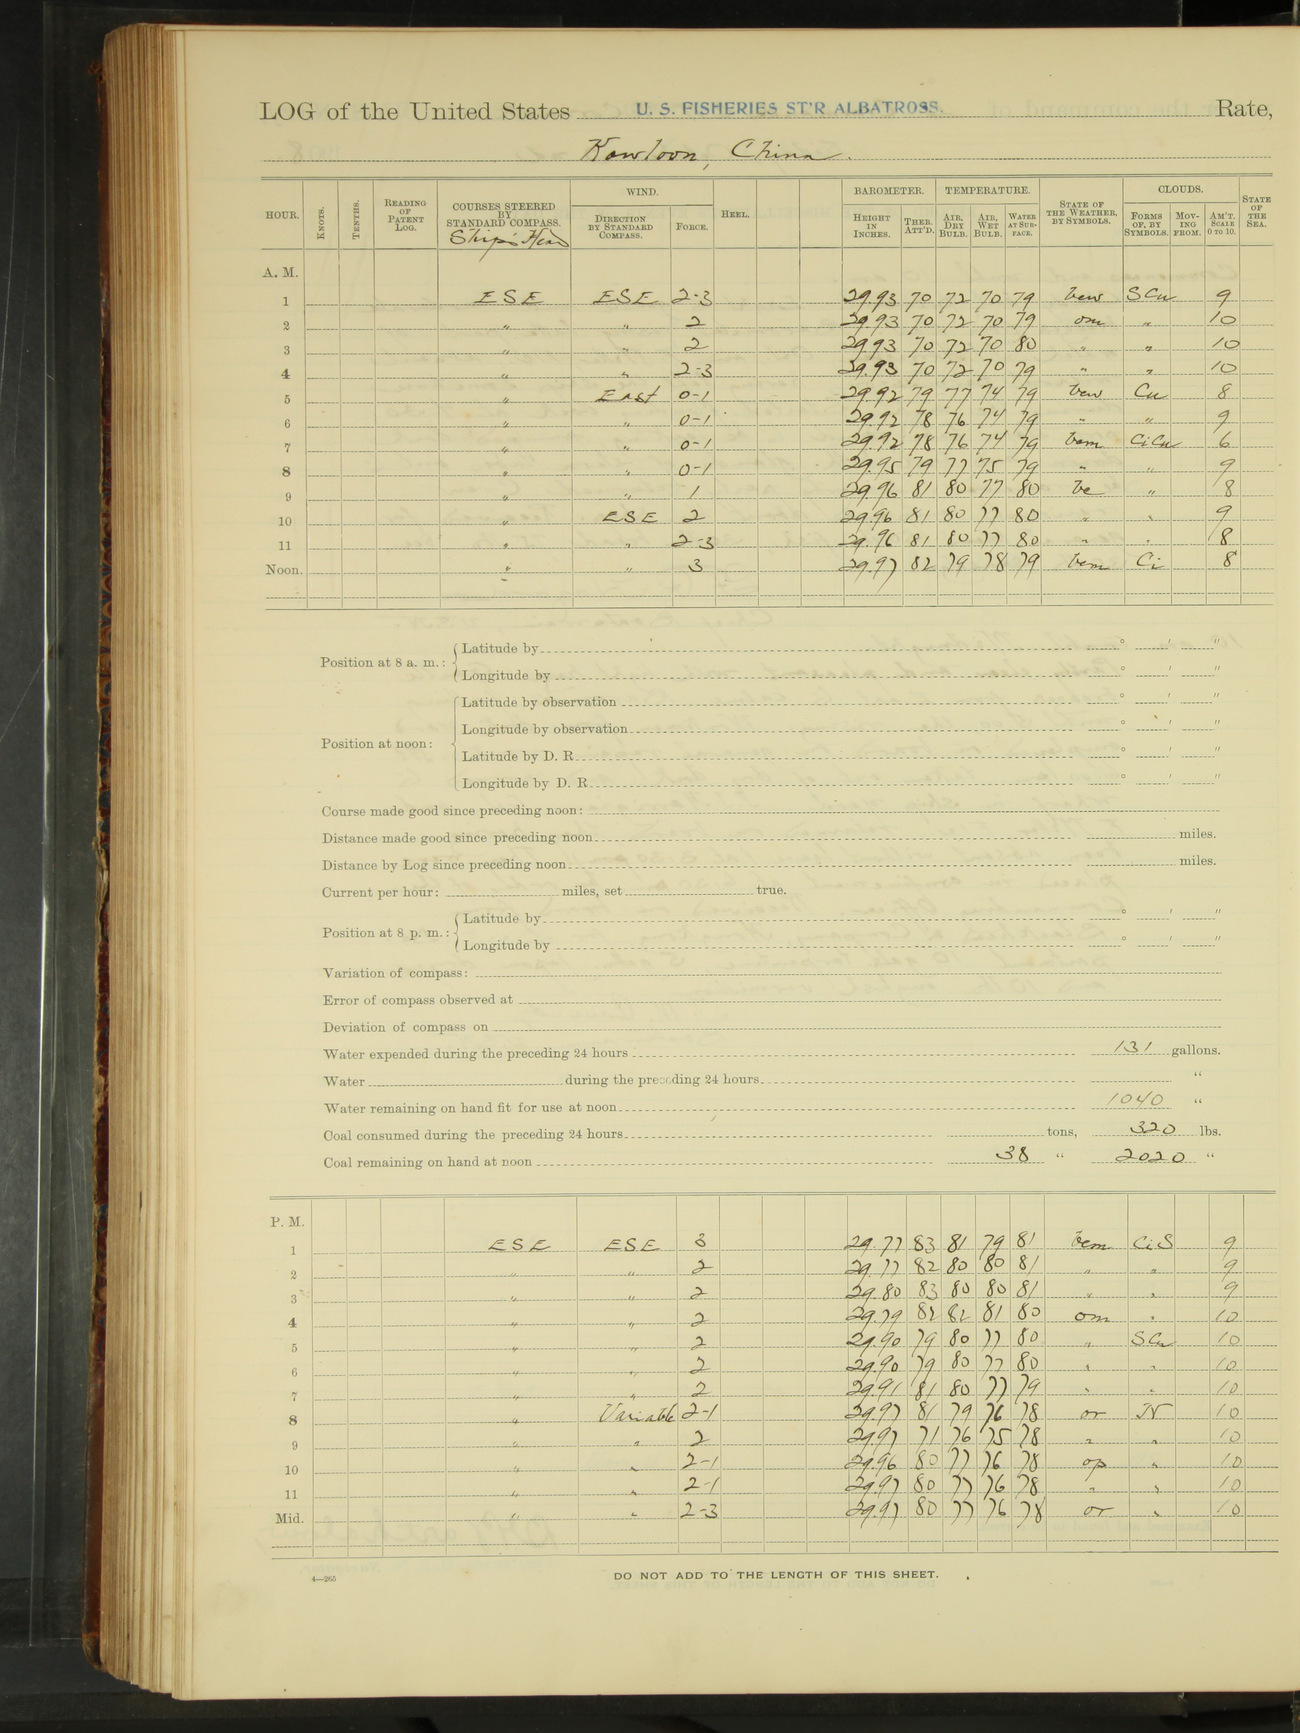 LOG of the United States U. S. FISHERIES ST'R ALBATROSS. Rate,
Kowloon, China.
HOUR. KNOTS. TENTHS. READING OF PATENT LOG. COURSES STEERED BY STANDARD COMPASS. Ship's Head WIND. DIRECTION BY STANDARD COMPASS. FORCE. HEEL. BAROMETER. HEIGHT IN INCHES. THER. ATT'D. TEMPERATURE. AIR, DRY BULB. AIR, WET BULB. WATER AT SURFACE. STATE OF THE WEATHER, BY SYMBOLS. CLOUDS. FORMS OF, BY SYMBOLS. MOVING FROM. AM'T. SCALE 0 TO 10. STATE OF THE SEA.
A. M.
1 ESE ESE 2-3 29.93 70 72 70 79 SCu 9
2 " " 2 29.93 70 72 70 79 om " 10
3 " " 2 29.93 70 72 70 80 " " 10
4 " " 2-3 29.93 70 72 70 79 " " 10
5 " East 0-1 29.92 79 77 74 79 Cu 8
6 " " 0-1 29.92 78 76 74 79 " " 9
7 " " 0-1 29.92 78 76 74 79 bcm CiCu 6
8 " " 0-1 29.95 79 77 75 79 " " 9
9 " " 1 29.96 81 80 77 80 bc " 8
10 " ESE 2 29.96 81 80 77 80 " " 9
11 " " 2-3 29.96 81 80 77 80 " " 8
Noon. " " 3 29.97 82 79 78 79 bcm Ci 8
Position at 8 a. m.: Latitude by ° ′ ″
Longitude by ° ′ ″
Position at noon: Latitude by observation ° ′ ″
Longitude by observation ° ′ ″
Latitude by D. R. ° ′ ″
Longitude by D. R. ° ′ ″
Course made good since preceding noon:
Distance made good since preceding noon miles.
Distance by Log since preceding noon miles.
Current per hour: miles, set true.
Position at 8 p. m.: Latitude by ° ′ ″
Longitude by ° ′ ″
Variation of compass:
Error of compass observed at
Deviation of compass on
Water expended during the preceding 24 hours 131 gallons.
Water during the preceding 24 hours "
Water remaining on hand fit for use at noon 1040 "
Coal consumed during the preceding 24 hours tons, 320 lbs.
Coal remaining on hand at noon 38 " 2020 "
P. M.
1 ESE ESE 3 29.77 83 81 79 81 bcm CiS 9
2 " " 2 29.77 82 80 80 81 " " 9
3 " " 2 29.80 83 80 80 81 " " 9
4 " " 2 29.79 82 82 81 80 om " 10
5 " " 2 29.90 79 80 77 80 " SCu 10
6 " " 2 29.90 79 80 77 80 " " 10
7 " " 2 29.91 81 80 77 79 " " 10
8 " Variable 2-1 29.97 81 79 76 78 or N 10
9 " " 2 29.97 71 76 75 78 " " 10
10 " " 2-1 29.96 80 77 76 78 op " 10
11 " " 2-1 29.97 80 77 76 78 " " 10
Mid. " " 2-3 29.97 80 77 76 78 or " 10
4—265
DO NOT ADD TO THE LENGTH OF THIS SHEET.